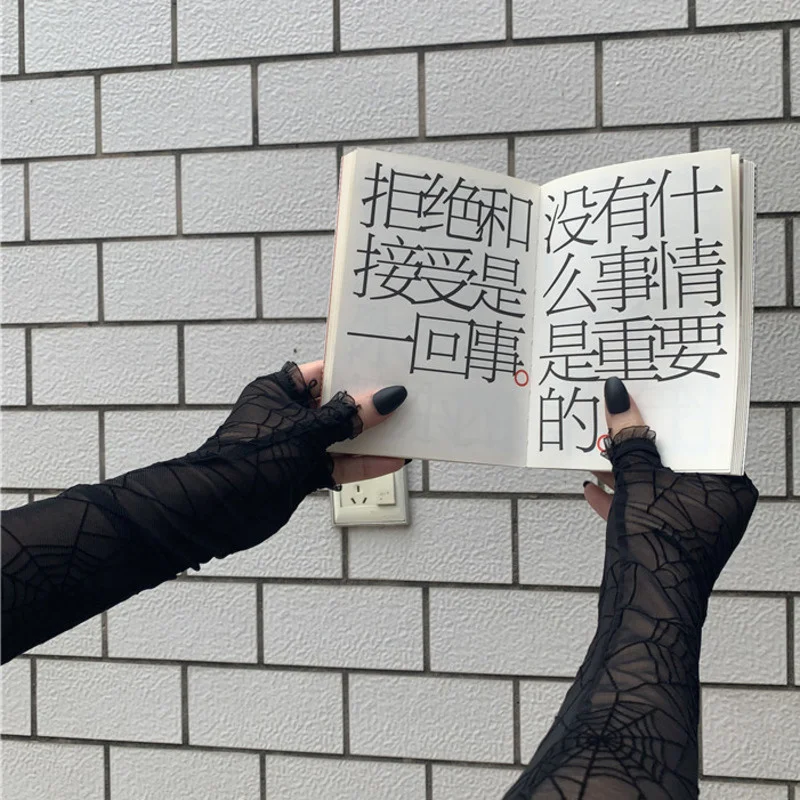 拒绝和
接受是
一回事。
没有什
么事情
是重要
的。